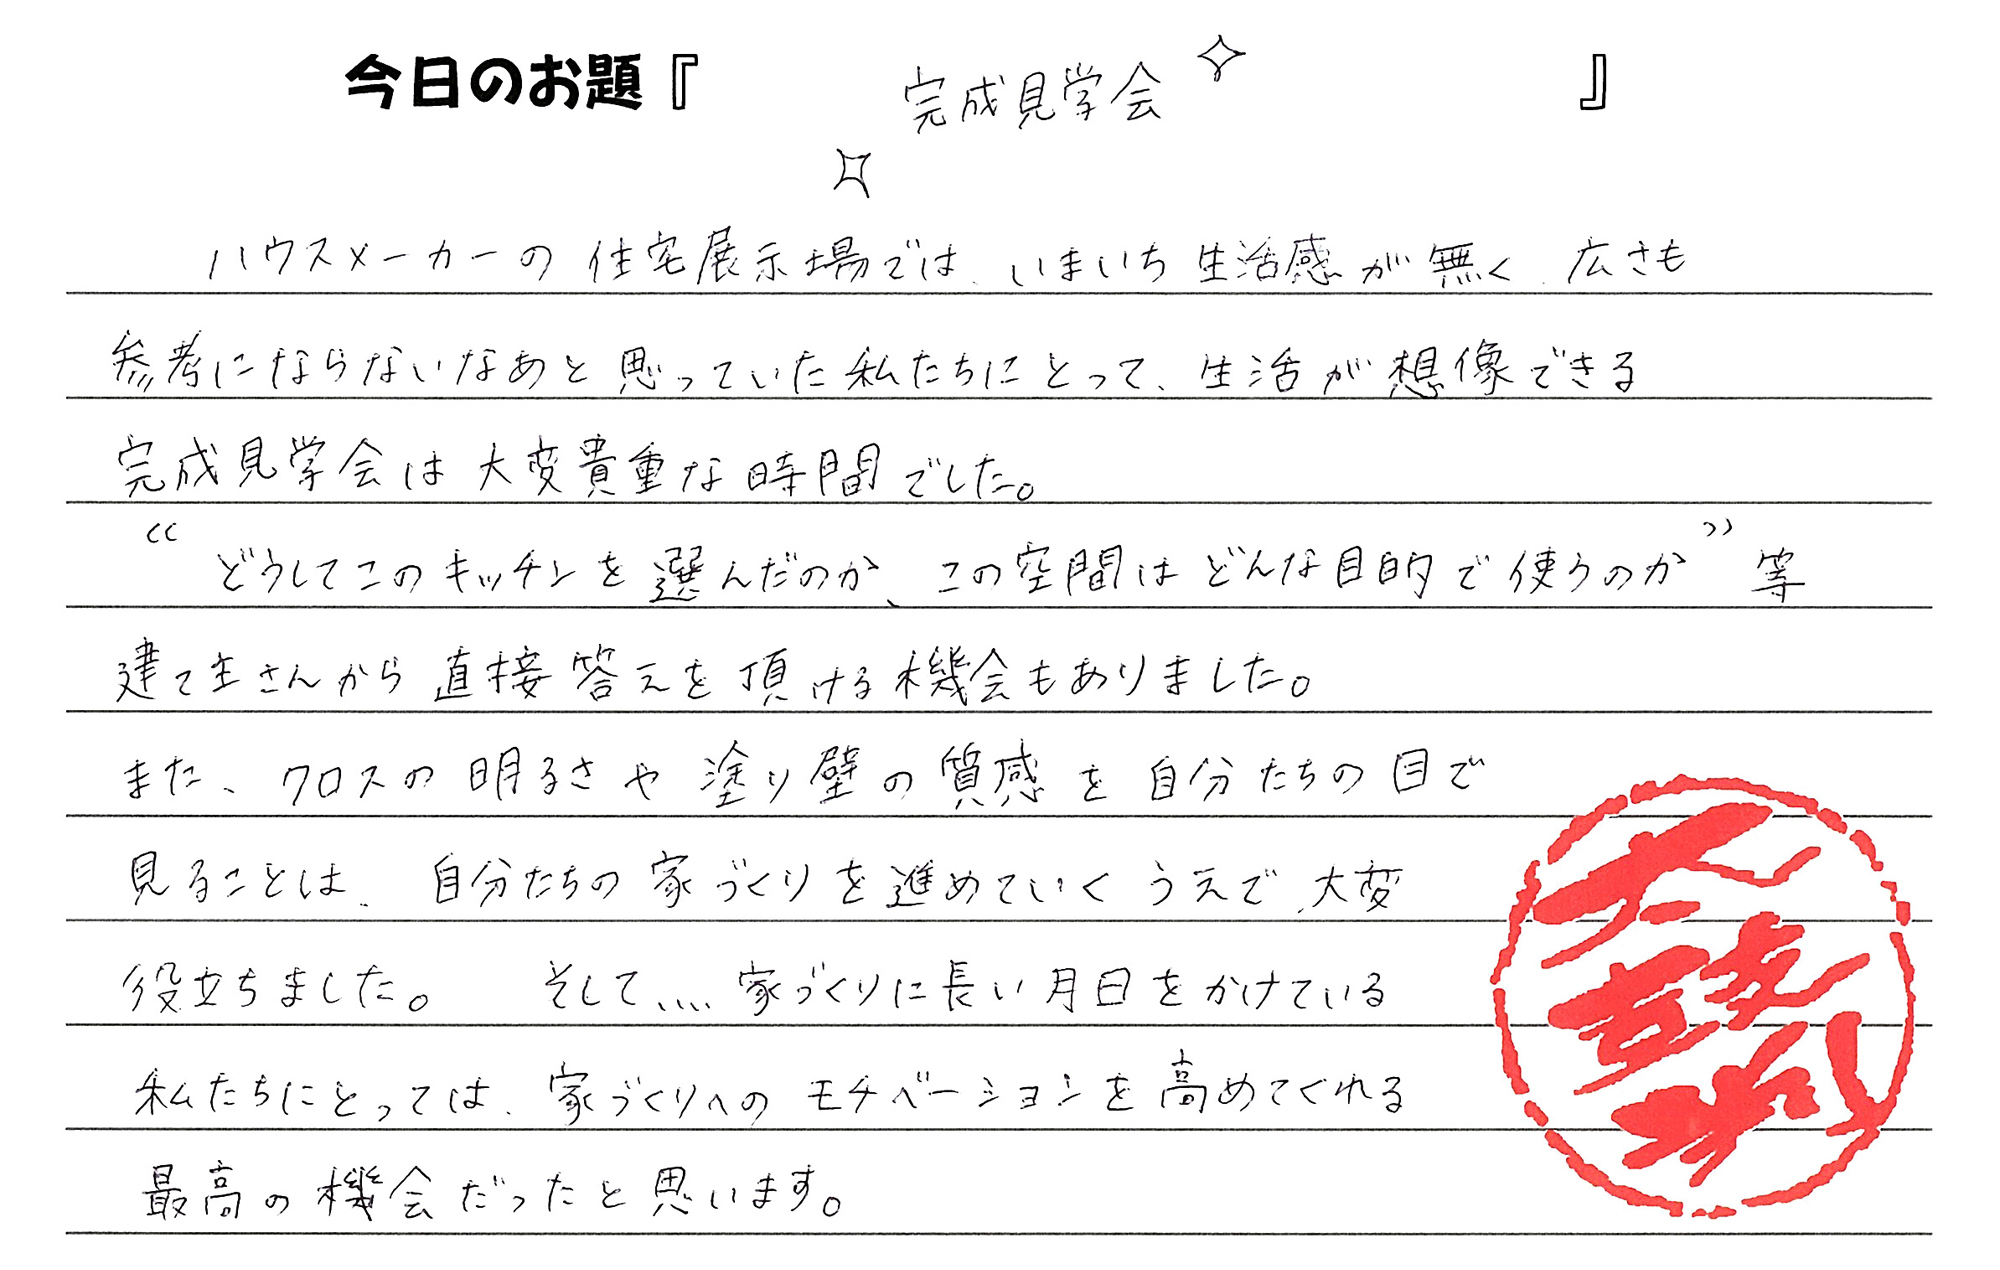 今日のお題『 完成見学会 』
ハウスメーカーの住宅展示場では、いまいち生活感が無く、広さも
参考にならないなあと思っていた私たちにとって、生活が想像できる
完成見学会は大変貴重な時間でした。
“どうしてこのキッチンを選んだのか、この空間はどんな目的で使うのか”等
建て主さんから直接答えを頂ける機会もありました。
また、クロスの明るさや塗り壁の質感を自分たちの目で
見ることは、自分たちの家づくりを進めていくうえで、大変
役立ちました。 そして、、、、家づくりに長い月日をかけている
私たちにとっては、家づくりへのモチベーションを高めてくれる
最高の機会だったと思います。